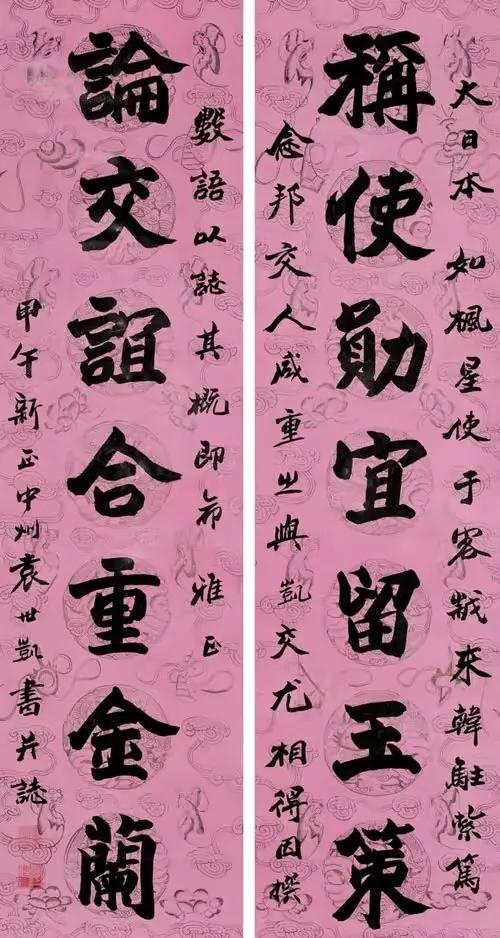 大日本 如楓星使于客歲來韓駐紮篤
稱使勛宜留玉策
念邦交人咸重之與凱交尤相得因撰
數語以誌其概即希雅正
論交誼合重金蘭
甲午新正中州袁世凱書并誌